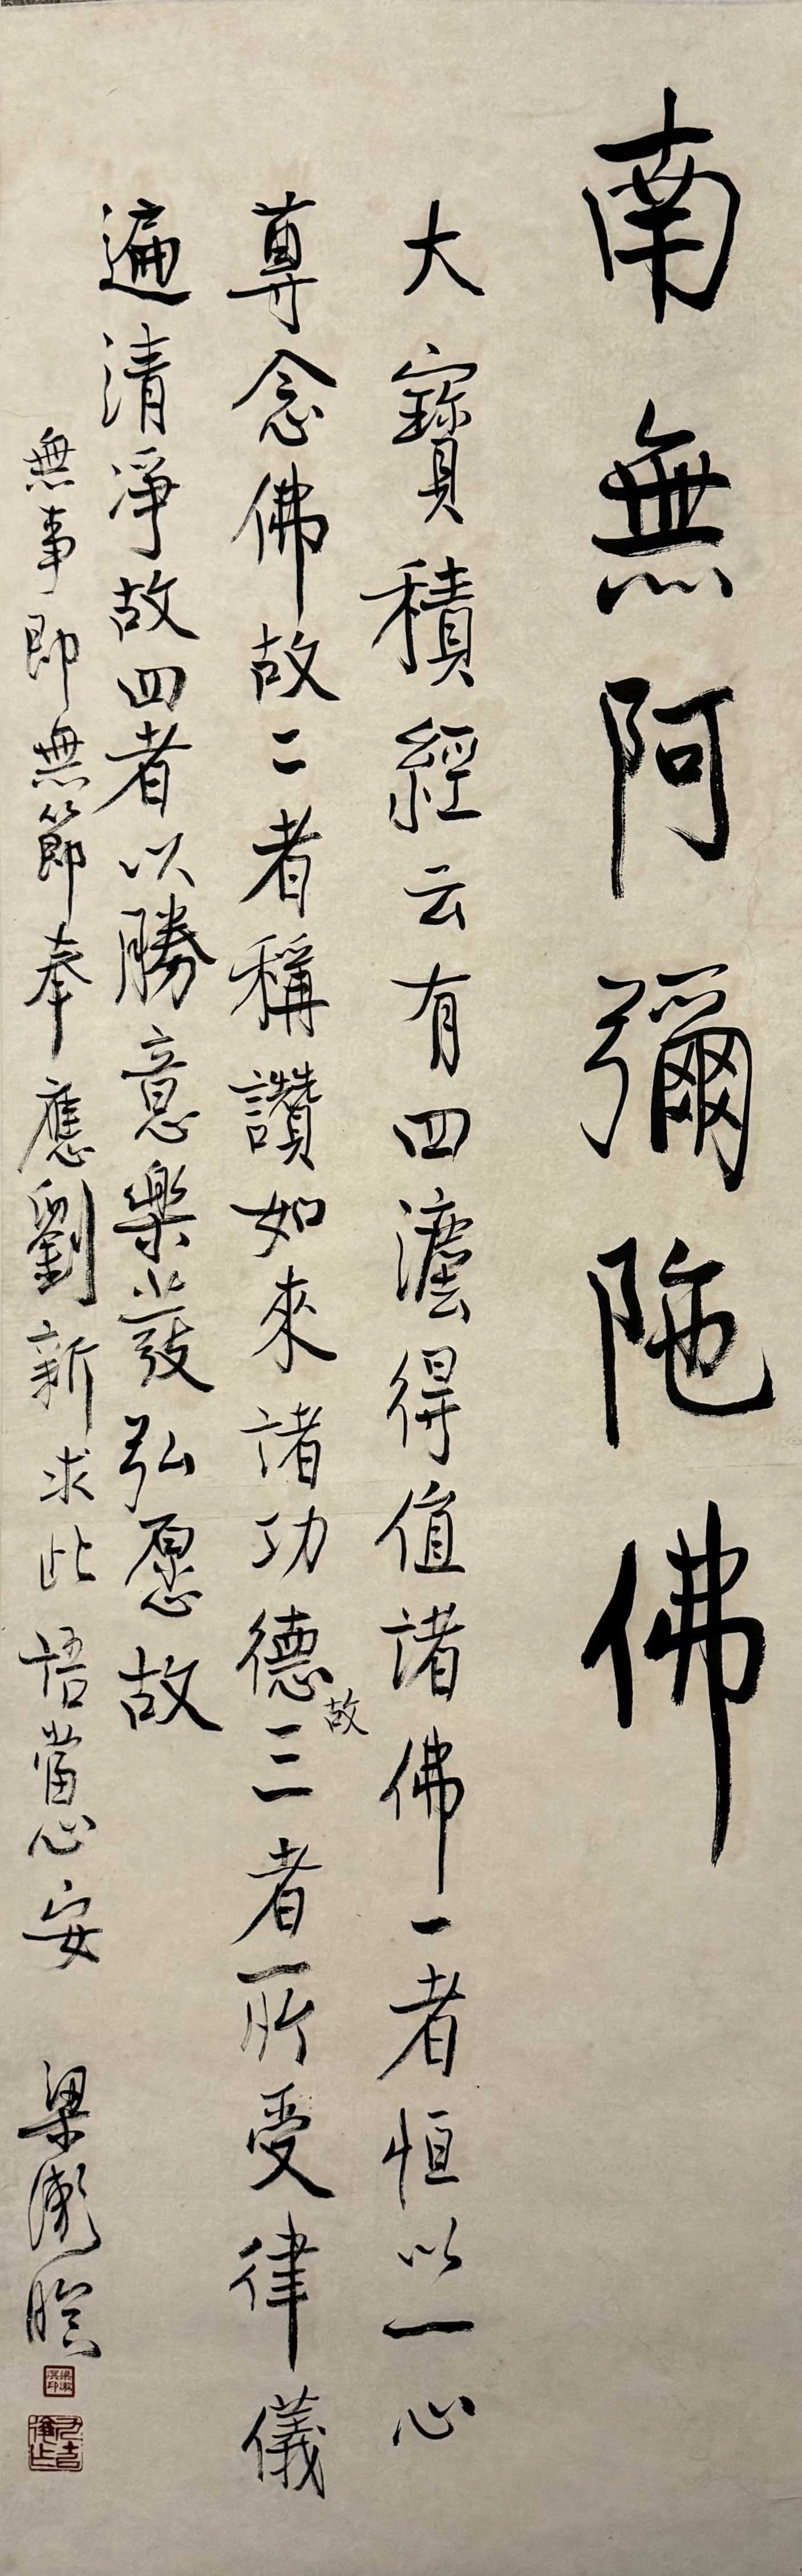 南無阿彌陁佛
大寳積經云有四灋得值諸佛一者恒以一心
尊念佛故二者稱讚如來諸功德故三者所受律儀
遍清淨故四者以勝意樂發弘愿故
無事即無節奉應劉新求此語當心安 梁漱溟
梁漱溟印